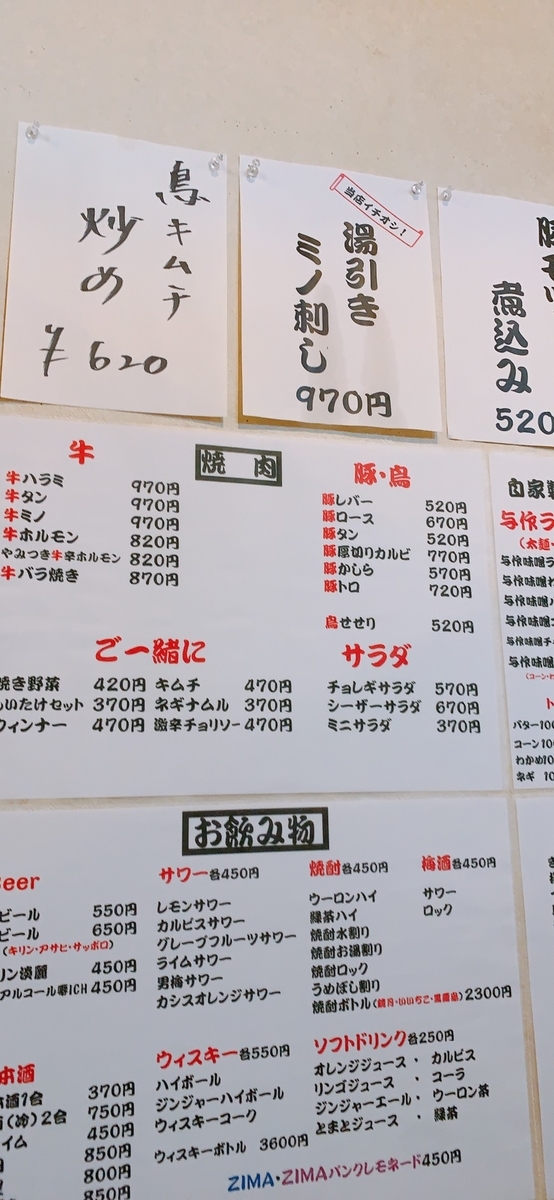 鳥キムチ
炒め
¥620
当店イチオシ！
湯引き
ミノ刺し
970円
煮込み
520
焼肉
牛
牛ハラミ 970円
牛タン 970円
牛ミノ 970円
牛ホルモン 820円
やみつき牛辛ホルモン 820円
牛バラ焼き 870円
豚・鳥
豚レバー 520円
豚ロース 670円
豚タン 520円
豚厚切りカルビ 770円
豚かしら 570円
豚トロ 720円
鳥せせり 520円
ご一緒に
焼き野菜 420円
いたけセット 370円
ウィンナー 470円
キムチ 470円
ネギナムル 370円
激辛チョリソー 470円
サラダ
チョレギサラダ 570円
シーザーサラダ 670円
ミニサラダ 370円
自家製
与作ラ
(太麺・
与作味噌ラ
与作味噌
与作味噌
与作味噌
与作味噌チ
与作味噌
(コーン・
ト
バター100
コーン100
わかめ10
ネギ 10
お飲み物
Beer
ビール 550円
ビール 650円
(キリン・アサヒ・サッポロ)
リン淡麗 450円
アルコール零ICH 450円
サワー各450円
レモンサワー
カルピスサワー
グレープフルーツサワー
ライムサワー
男梅サワー
カシスオレンジサワー
焼酎各450円
ウーロンハイ
緑茶ハイ
焼酎水割り
焼酎お湯割り
焼酎ロック
うめぼし割り
焼酎ボトル(鏡月・いいちこ・黒霧島)2300円
梅酒各450円
サワー
ロック
本酒
本酒1合 370円
(冷)2合 750円
イム 450円
850円
800円
850円
ウィスキー各550円
ハイボール
ジンジャーハイボール
ウィスキーコーク
ウィスキーボトル 3600円
ソフトドリンク各250円
オレンジジュース・カルピス
リンゴジュース・コーラ
ジンジャーエール・ウーロン茶
とまとジュース・緑茶
ZIMA・ZIMAパンクレモネード450円